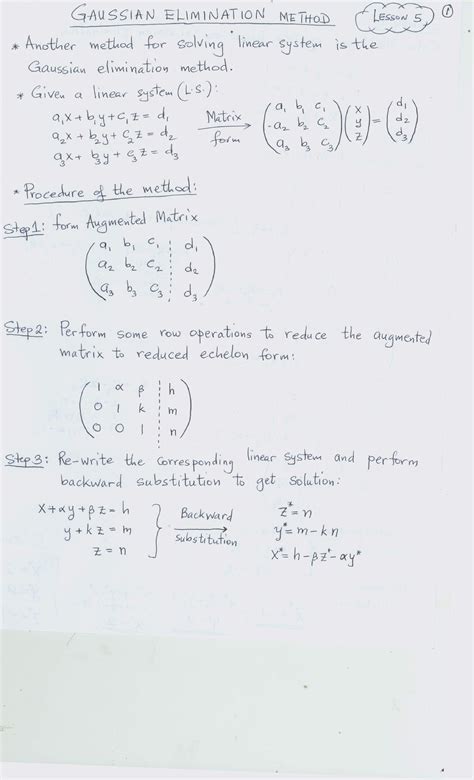 GAUSSIAN ELIMINATION METHOD
LESSON 5
1
* Another method for solving linear system is the
Gaussian elimination method.
* Given a linear system (L.S.):
a₁x + b₁y + c₁z = d₁
a₂x + b₂y + c₂z = d₂
a₃x + b₃y + c₃z = d₃
Matrix
form
a₁ b₁ c₁ x d₁
-a₂ b₂ c₂ y = d₂
a₃ b₃ c₃ z d₃
* Procedure of the method:
Step1: form Augmented Matrix
a₁ b₁ c₁ d₁
a₂ b₂ c₂ d₂
a₃ b₃ c₃ d₃
Step2: Perform some row operations to reduce the augmented
matrix to reduced echelon form:
1 α β h
0 1 k m
0 0 1 n
Step3: Re-write the corresponding linear system and perform
backward substitution to get solution:
x + αy + βz = h
y + kz = m
z = n
Backward
substitution
z* = n
y* = m - kn
x* = h - βz* - αy*